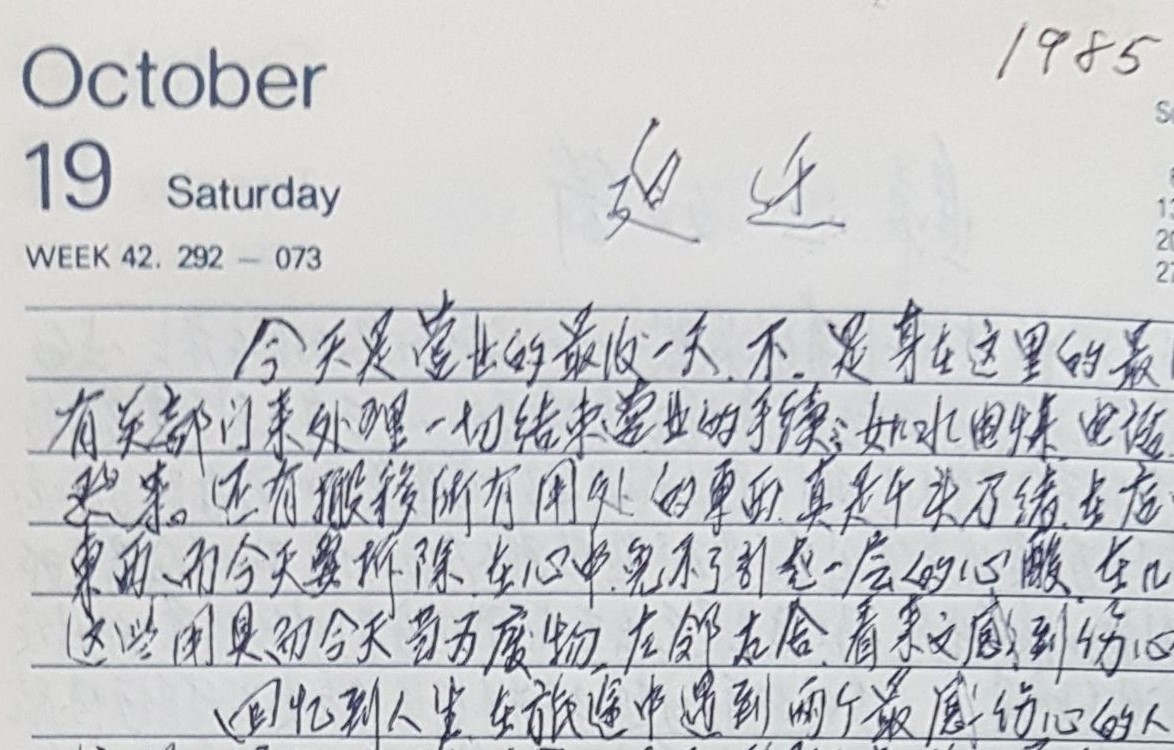 October
1985
19 Saturday
迫近
WEEK 42. 292 — 073
今天是营业的最后一天.不.是身在这里的最
有关部门来处理一切结束营业的手续:如水电煤电话
起来。还有搬移所有用处的東西.真是千头万绪.在店
東西、而今天要拆除.在心中免不了引起一层的心酸.在几
这些用具而今天当为废物.左邻右舍.看来又感到伤心
回忆到人生在旅途中遇到两个最感伤心的人